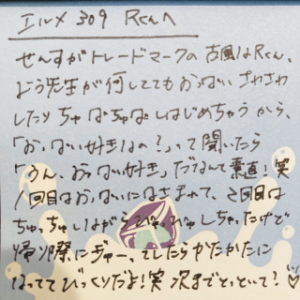 エルメ 309 Rくんへ
せんすがトレードマークの古風なRくん、
よう先生が何しててもおっぱいさわさわ
したりちゅぱちゅぱしはじめちゃうから、
「おっぱい好きなの?」って聞いたら
「うん、おっぱい好き」だなんて素直!笑
1回目はおっぱいにはさまれて、2回目は
ちゅっちゅしながらぴゅっぴゅしちゃったけど
帰り際にぎゅーってしたらまたかたかたに
なっててびっくりだよ!笑 次までとっといて!♡